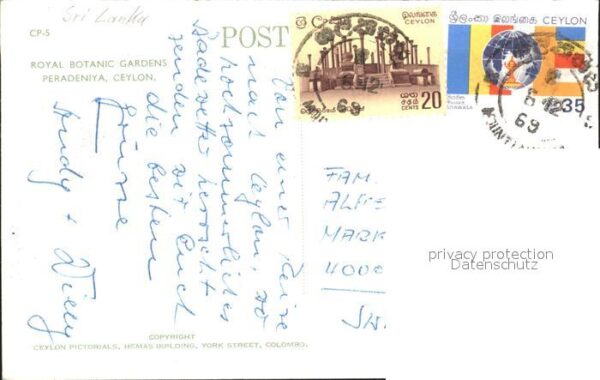 Sri Lanka
CP-5
ROYAL BOTANIC GARDENS
PERADENIYA, CEYLON.
POST
ශ්‍රී ලංකා
இலங்கை
CEYLON
20
CENTS
ශ්‍රී ලංකා இலங்கை CEYLON
35
69
69
Von einer Reise
nach Ceylon, wo
hochsommerliches
Badewetter herrscht
senden wir Euch
die besten
Grüsse
Trudy + Willy
FAM.
ALFRE
MARK
4000
privacy protection
Datenschutz
COPYRIGHT
CEYLON PICTORIALS, HEMAS BUILDING, YORK STREET, COLOMBO.